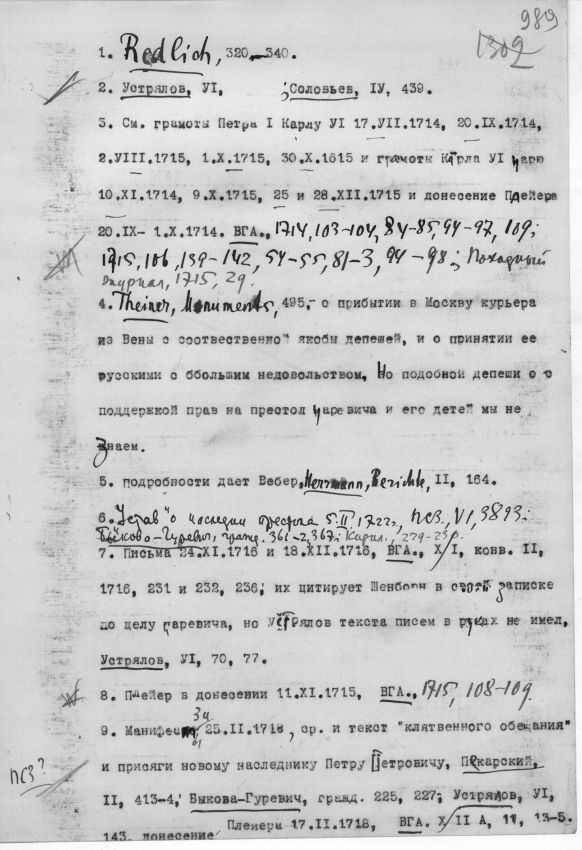 989
1302
1. Redlich, 320–340.
2. Устрялов, УІ, ; Соловьев, ІУ, 439.
3. См. грамоты Петра I Карлу УІ 17.УІІ.1714, 20.IX.1714,
2.УІІІ.1715, 1.X.1715, 30.X.1615 и грамоты Карла УІ царю
10.XI.1714, 9.X.1715, 25 и 28.XII.1715 и донесение Плейера
20.IX- 1.X.1714. ВГА., 1714, 103-104, 84-85, 94-97, 109;
1715, 106, 139-142, 54-55, 81-3, 94-98; Походный
журнал, 1715, 29.
4. Theiner, Monuments, 495,- о прибытии в Москву курьера
из Вены с соотвественой якобы депешей, и о принятии ее
русскими с ббольшим недовольством. Но подобной депеши о с
поддержкой прав на престол царевича и его детей мы не
знаем.
5. подробности дает Вебер, Herrmann, Berichte, II, 164.
6. "Устав" о наследии престола 5.II.1722г., ПСЗ., VI, 3893;
Быкова-Гуревич, гражд. 366-2, 367; Кирил., 229-230.
7. Письма 24.XI.1716 и 18.XII.1716, ВГА., X/I, конв. II,
1716, 231 и 232, 236; их цитирует Шенборн в своей записке
по делу царевича, но Устрялов текста писем в руках не имел,
Устрялов, УІ, 70, 77.
8. Плейер в донесении 11.XI.1715, ВГА., 1715, 108-109.
9. Манифесты 3 и 25.II.1718, ср. и текст "клятвенного обещания"
и присяги новому наследнику Петру Петровичу, Пекарский,
ПСЗ?
II, 413-4; Быкова-Гуревич, гражд. 225, 227; Устрялов, УІ,
143, донесение Плейера 17.II.1718, ВГА. X/II А, 11, 13-5.